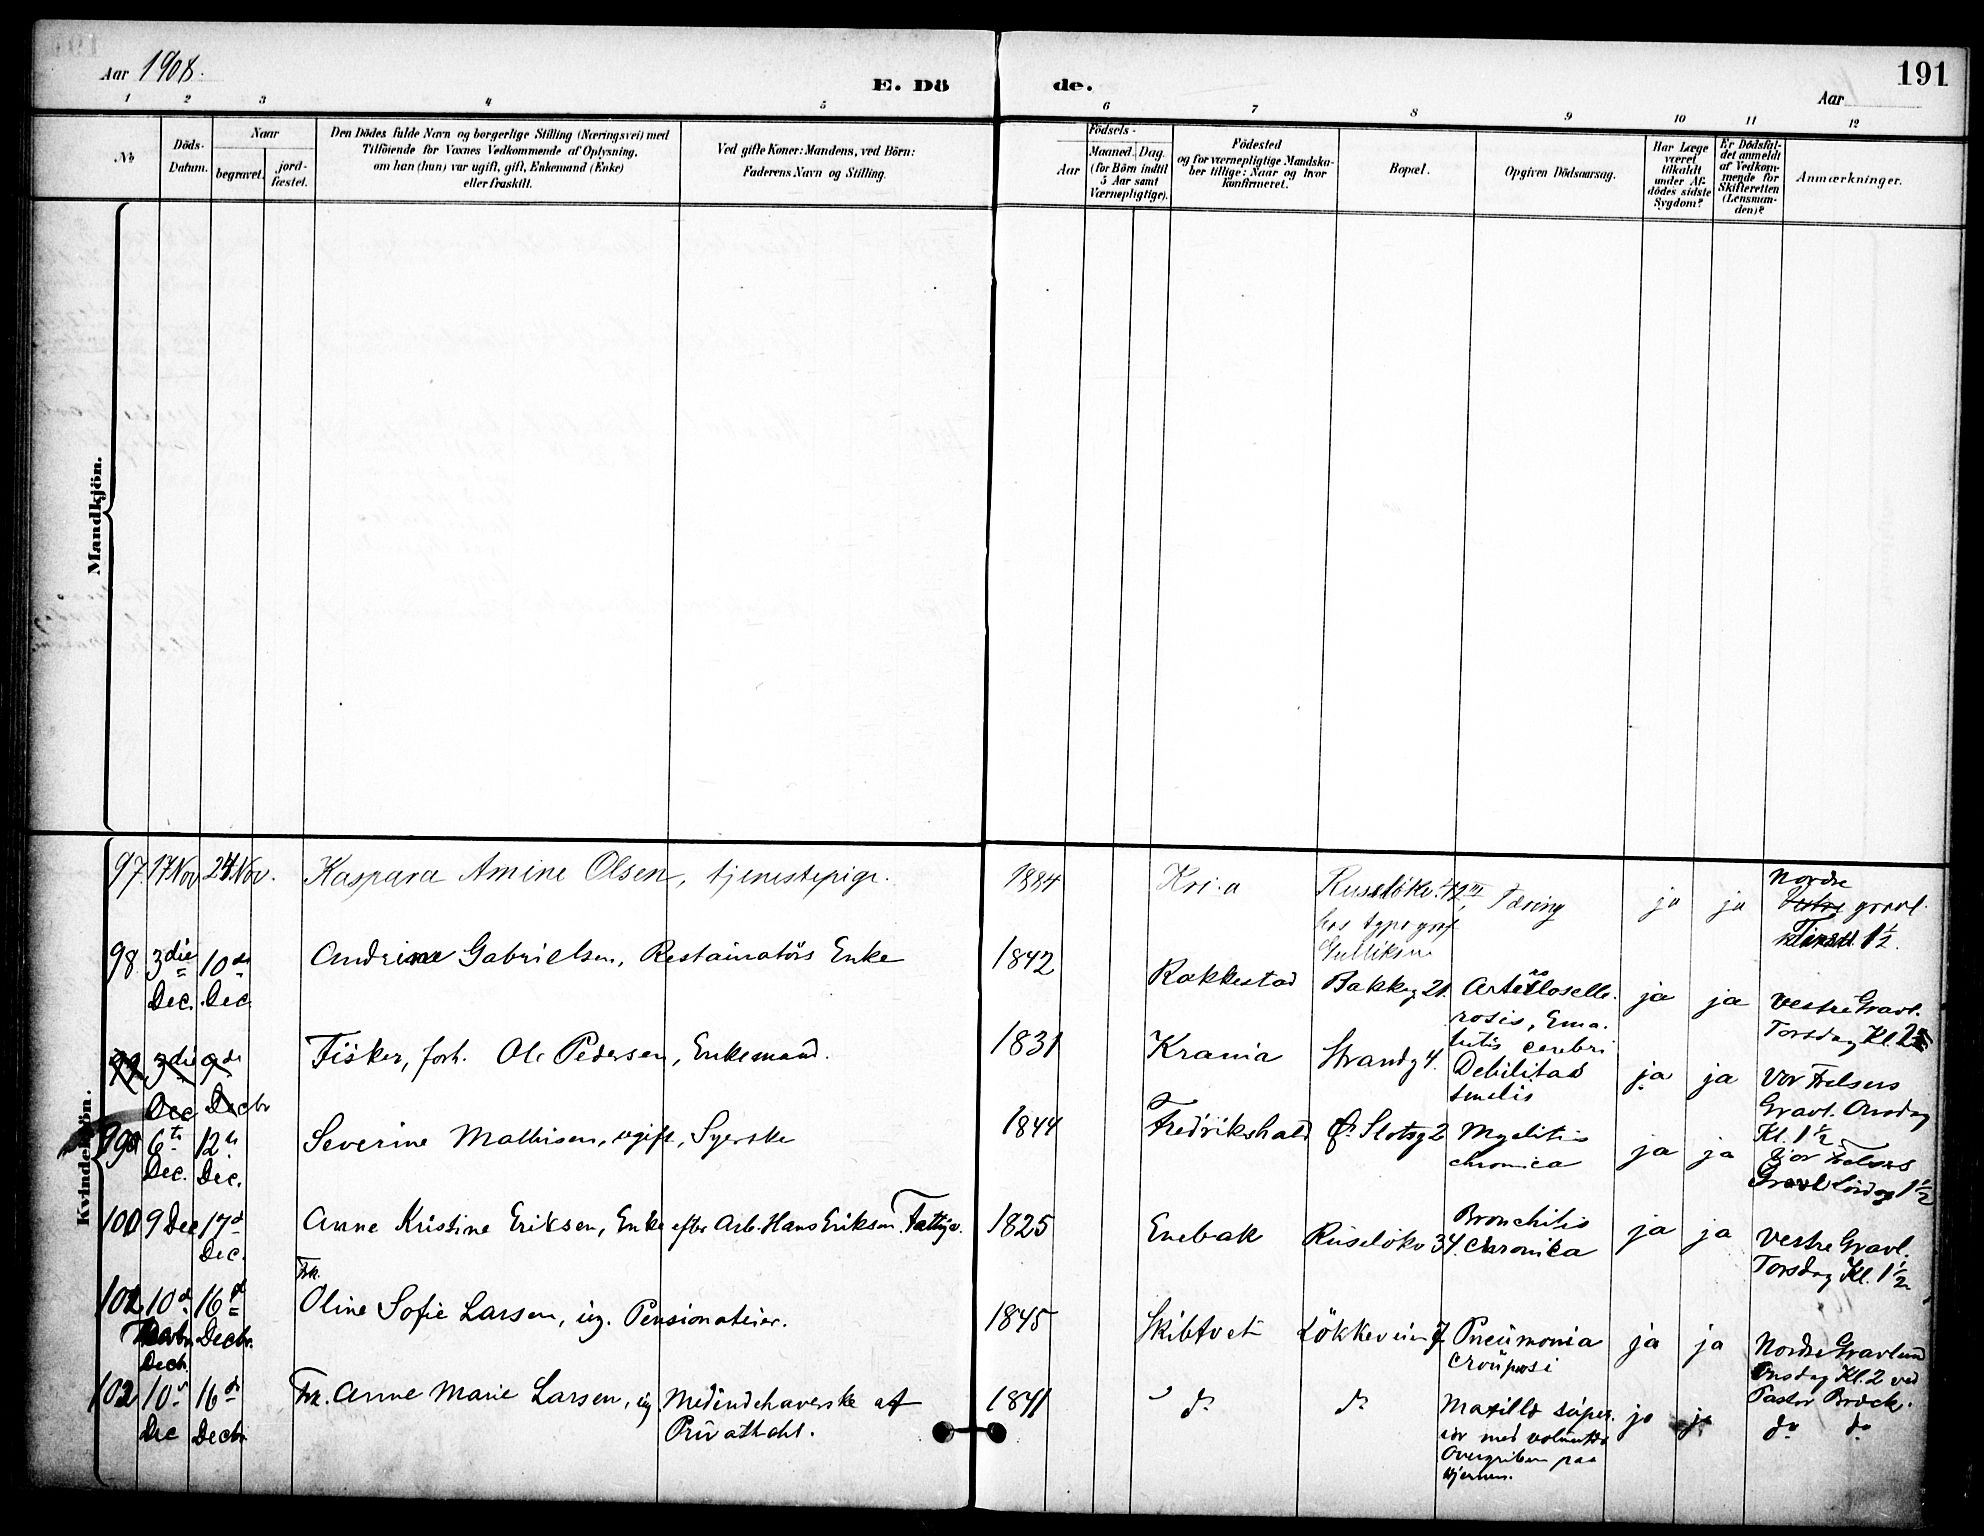 Aar 1908.
E. Dö de.
191
Aar
1 2 3 4 5 6 7 8 9 10 11 12
No
Döds-
Datum.
Naar
begravet.
jord-
fæstet.
Den Dödes fulde Navn og borgerlige Stilling (Næringsvei) med
Tilföiende for Voxnes Vedkommende af Oplysning,
om han (hun) var ugift, gift, Enkemand (Enke)
eller fraskilt.
Ved gifte Koner: Mandens, ved Börn:
Faderens Navn og Stilling.
Födsels-
Aar
Maaned. Dag.
(for Börn indtil
5 Aar samt
Værnepligtige).
Födested
og for værnepligtige Mandska-
ber tillige: Naar og hvor
konfirmeret.
Bopæl.
Opgiven Dödsaarsag.
Har Læge
været
tilkaldt
under Af-
dödes sidste
Sygdom?
Er Dödsfal-
det anmeldt
af Vedkom-
mende for
Skifteretten
(Lensman-
den)?
Anmærkninger.
Mandkjön.
Kvindekjön.
97. 17 Nov 24. Nov. Kaspara Amine Olsen, tjenestepige. 1884 Kri.a Tæring ja ja
Nordre
Vestre gravl.
1½.
hos typograf
98. 3die Dec. 10de Dec. Andrine Gabrielsen, Restauratörs Enke 1842 Rakkestad Bakkeg 21. ja ja
Vestre Gravl.
Torsdag Kl.
cerebri
99 3die Dec 9de Decbr Fisker, forh. Ole Pedersen, Enkemand. 1831 Krania Strandg 4. Debilitas
senilis
ja ja
Vor Frelsers
Gravl. Onsdag
Kl. 1½
99 6te Dec. 12te Dec. Severine Mathisen, ugift, Syerske 1844 Fredrikshald Slotsg 2 Myelitis
chronica
ja ja
Vor Frelsers
Gravl Lördag 1½
100 9 Dec 17de Dec. Anne Kristine Eriksen, Enke efter Arb. Hans Eriksen. Fattigv. 1825 Enebak Ruselökv 34. Bronchitis
chronica
ja ja
Vestre Gravl.
Torsdag Kl. 1½
101 10de Decb. 16de Decbr. Frk.
Oline Sofie Larsen, ug. Pensionateier. 1845 Skibtvet Lökkeveien 7 Pneumonia
crouposi
ja ja
Nordre Gravlund
Onsdag Kl. 2 ved
Pastor Brock.
102 10de Dec 16de Decbr Frk. Anne Marie Larsen, ug. Medindehaverske af
Privathotel.
1841 do do
med
paa
hjernen.
ja ja do do